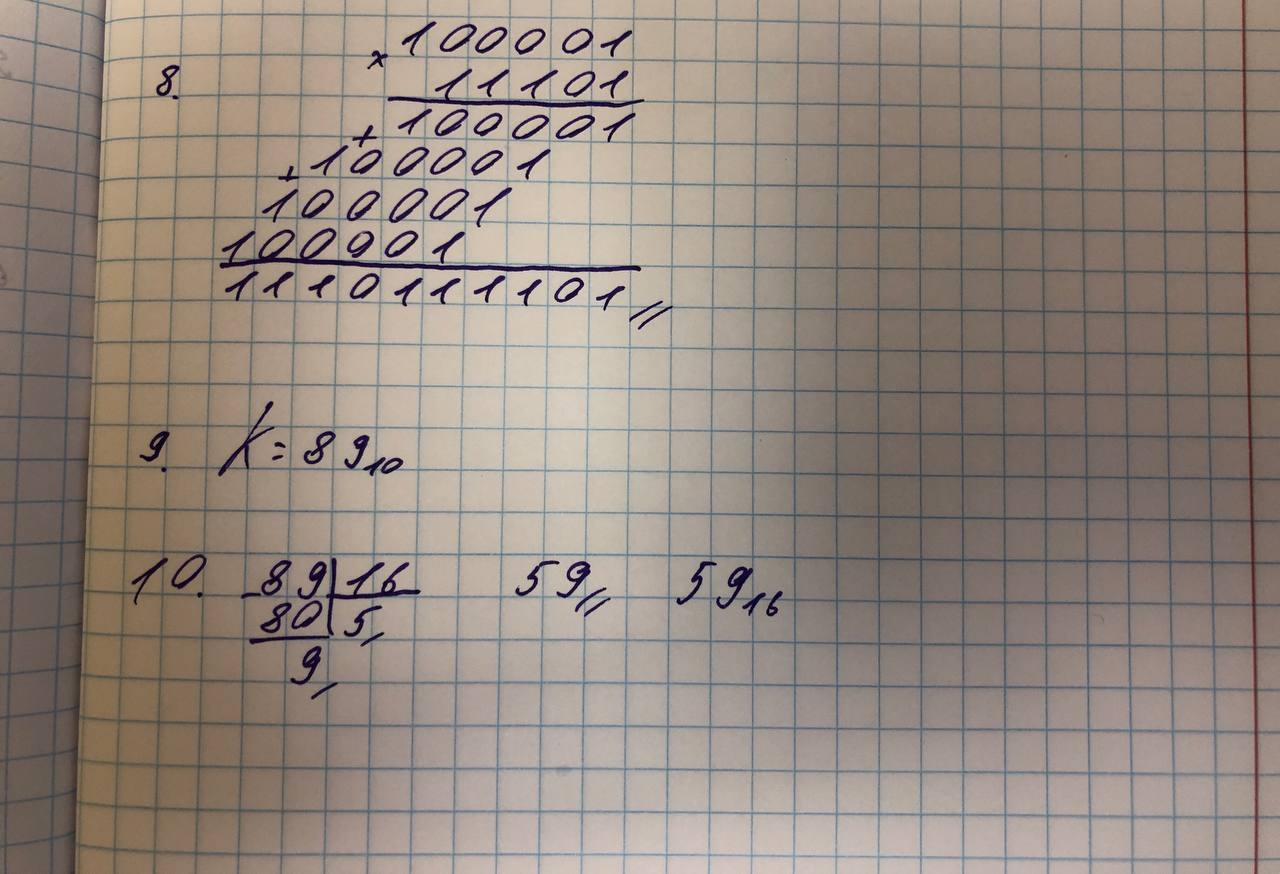 100001
8. × 11101
+ 100001
+ 100001
100001
100001
1110111101//
9. K = 89₁₀
10. 89 | 16 59// 59₁₆
80 | 5,
9,